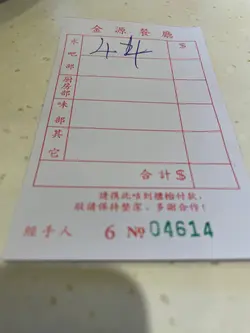 金源餐廳
水吧部 $
廚房部
味部
其它
合計 $
請攜此咭到櫃檯付款，
敬請保持整潔，多謝合作！
經手人 6 № 04614